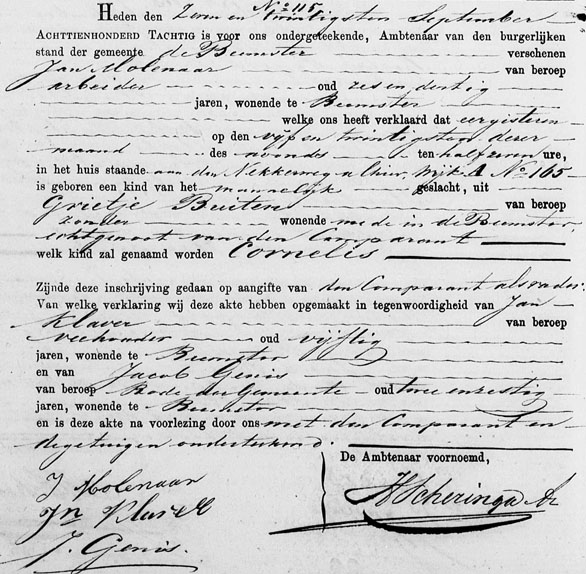 No 115.
Heden den Zeven en Twintigsten September
ACHTTIENHONDERD TACHTIG is voor ons ondergeteekende, Ambtenaar van den burgerlijken
stand der gemeente de Beemster verschenen
Jan Molenaar van beroep
arbeider oud zes en dertig
jaren, wonende te Beemster
welke ons heeft verklaard dat eergisteren
op den vijf en twintigsten dezer
maand des avonds ten half zeven ure,
in het huis staande aan den Nekkerweg alhier, Wijk A No 165
is geboren een kind van het mannelijk geslacht, uit
Grietje Buiten van beroep
zonder wonende mede in de Beemster,
echtgenoot van den Comparant
welk kind zal genaamd worden Cornelis
Zijnde deze inschrijving gedaan op aangifte van den Comparant als vader.
Van welke verklaring wij deze akte hebben opgemaakt in tegenwoordigheid van Jan
Klaver van beroep
veehouder oud vijftig
jaren, wonende te Beemster
en van Jacob Genis
van beroep Bode der Gemeente oud twee en zestig
jaren, wonende te Beemster
en is deze akte na voorlezing door ons met den Comparant en
de getuigen onderteekend.
De Ambtenaar voornoemd,
J Molenaar
Jn Klaver
J. Genis.
Scheringa